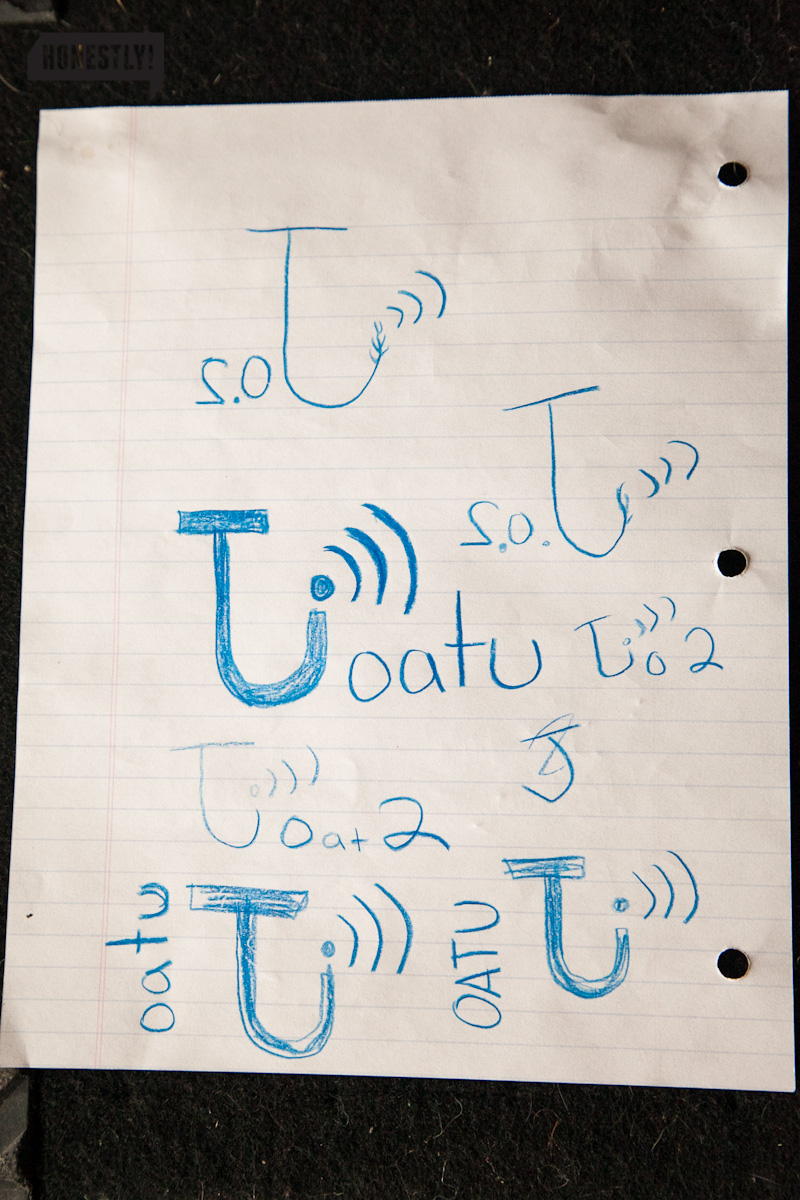 HONESTLY!
2.0
2.0.
oatu
o2
oat2
oatu
OATU